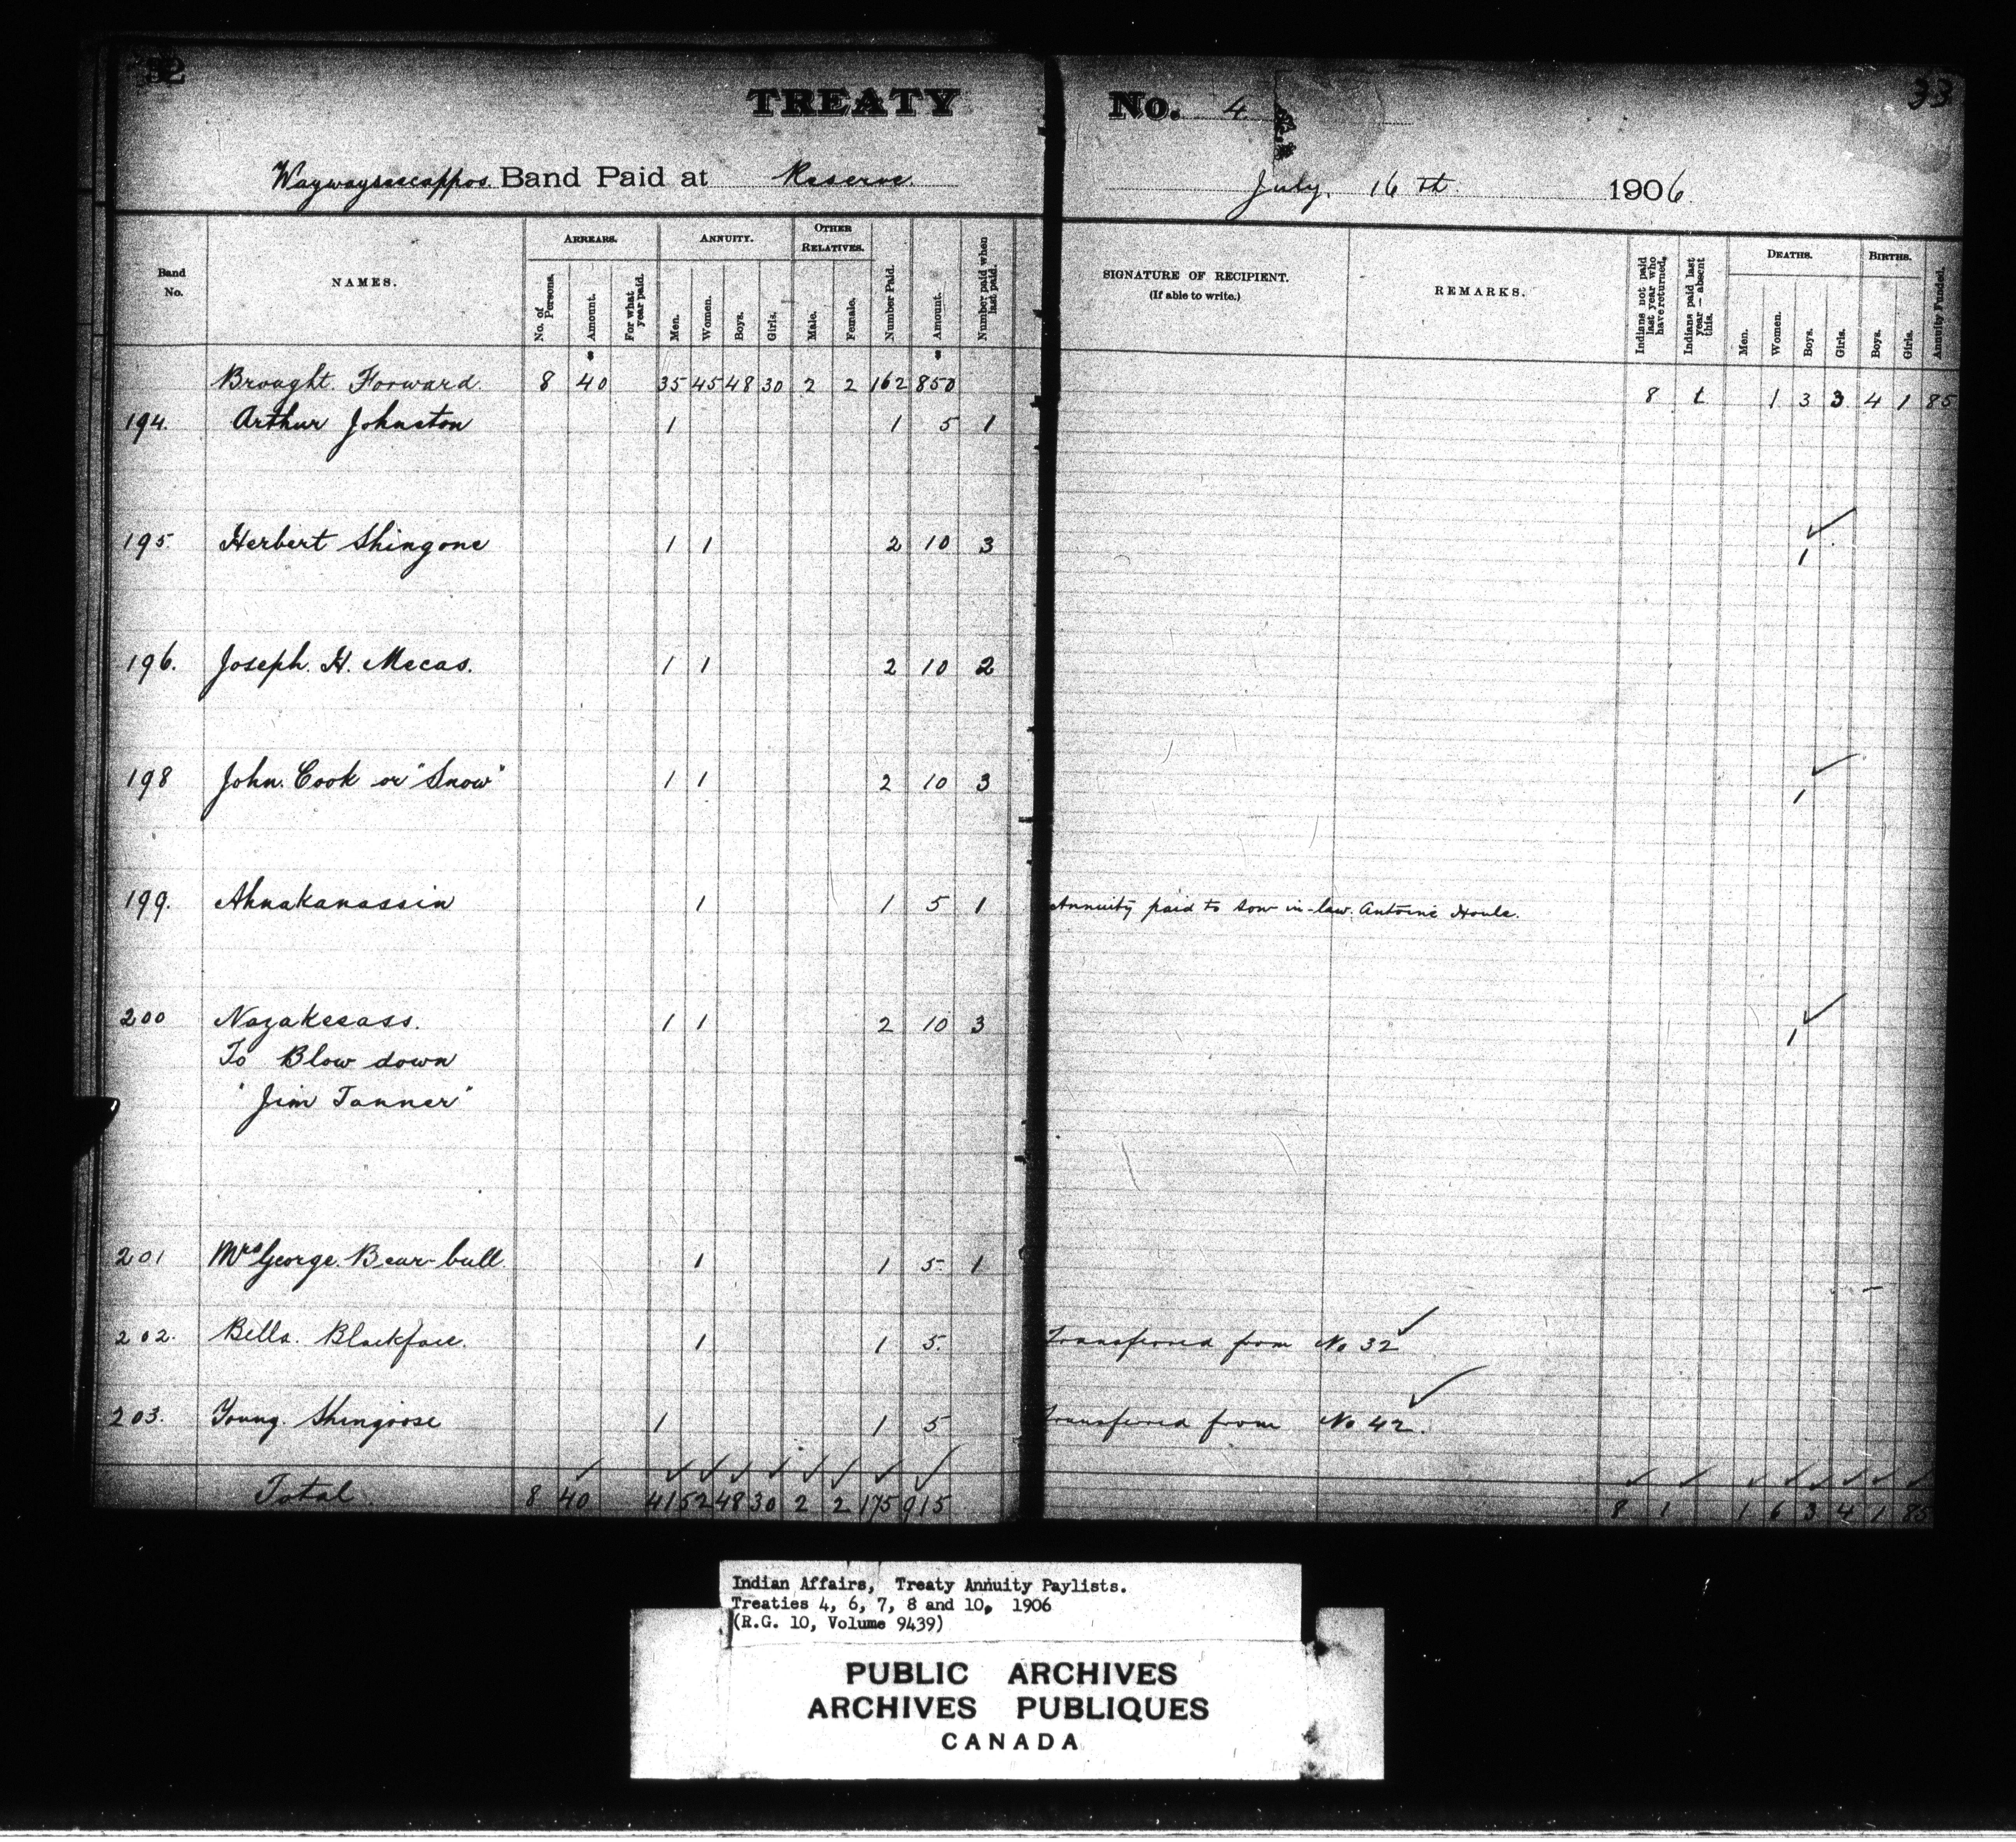 32
TREATY No. 4
33
Waywayseecappos Band Paid at Reserve. July, 16th 1906
Band No.
NAMES.
ARREARS.
No. of Persons.
Amount.
For what year paid.
ANNUITY.
Men.
Women.
Boys.
Girls.
OTHER RELATIVES.
Male.
Female.
Number Paid.
Amount.
Number paid when last paid.
SIGNATURE OF RECIPIENT.
(If able to write.)
REMARKS.
Indians not paid last year who have returned.
Indians paid last year — absent this.
DEATHS.
Men.
Women.
Boys.
Girls.
BIRTHS.
Boys.
Girls.
Annuity Funded.
Brought Forward. 8 40 35 45 48 30 2 2 162 850 8 1 1 3 3 4 1 85
194. Arthur Johnston 1 1 5 1
195. Herbert Shingone 1 1 2 10 3 1
196. Joseph. H. Mecas. 1 1 2 10 2
198 John. Cook or "Snow" 1 1 2 10 3 1
199. Ahnakanassin 1 1 5 1 Annuity paid to son-in-law. Antoine Houle.
200 Nazakeeass. 1 1 2 10 3 1
To Blow down
"Jim Tanner"
201 Mrs George. Bear-bull. 1 1 5. 1
202. Bella. Blackface. 1 1 5. Transferred from No 32
203. Young. Shingoose 1 1 5 Transferred from No 42.
Total 8 40 41 52 48 30 2 2 175 915 8 1 1 6 3 4 1 85
Indian Affairs, Treaty Annuity Paylists.
Treaties 4, 6, 7, 8 and 10, 1906
(R.G. 10, Volume 9439)
PUBLIC ARCHIVES
ARCHIVES PUBLIQUES
CANADA